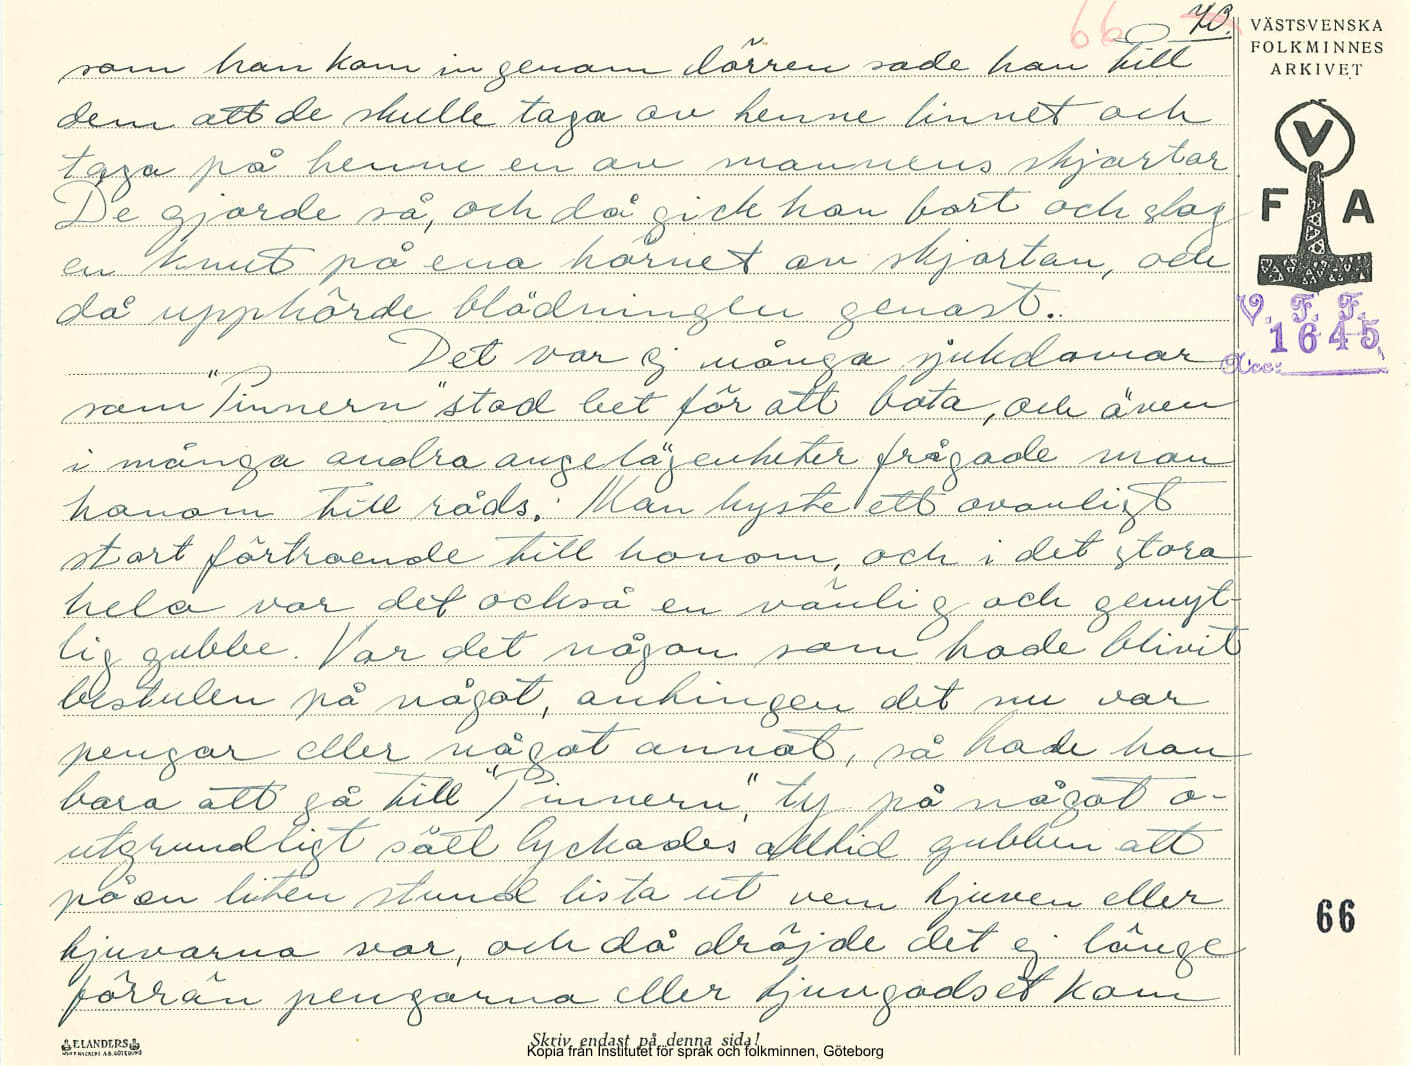 66
VÄSTSVENSKA
FOLKMINNES
ARKIVET
V
F A
V. F. F.
1645
Acc:
som han kom in genom dörren sade han till
dem att de skulle taga av henne linnet och
taga på henne en av mannens skjortor
De gjorde så, och då gick han bort och slog
en knut på ena hörnet av skjortan, och
då upphörde blödningen genast.
Det var ej många sjukdomar
som "Pinnern" stod bet för att bota, och även
i många andra angelägenheter frågade man
honom till råds. Man hyste ett ovanligt
stort förtroende till honom, och i det stora
hela var det också en vänlig och gemyt-
lig gubbe. Var det någon som hade blivit
bestulen på något, antingen det nu var
pengar eller något annat, så hade han
bara att gå till "Pinnern", ty på något o-
utgrundligt sätt lyckades alltid gubben att
på en liten stund lista ut vem tjuven eller
tjuvarna var, och då dröjde det ej länge
förrän pengarna eller tjuvgodset kom
66
ELANDERS
Skriv endast på denna sida!
Kopia från Institutet för språk och folkminnen, Göteborg